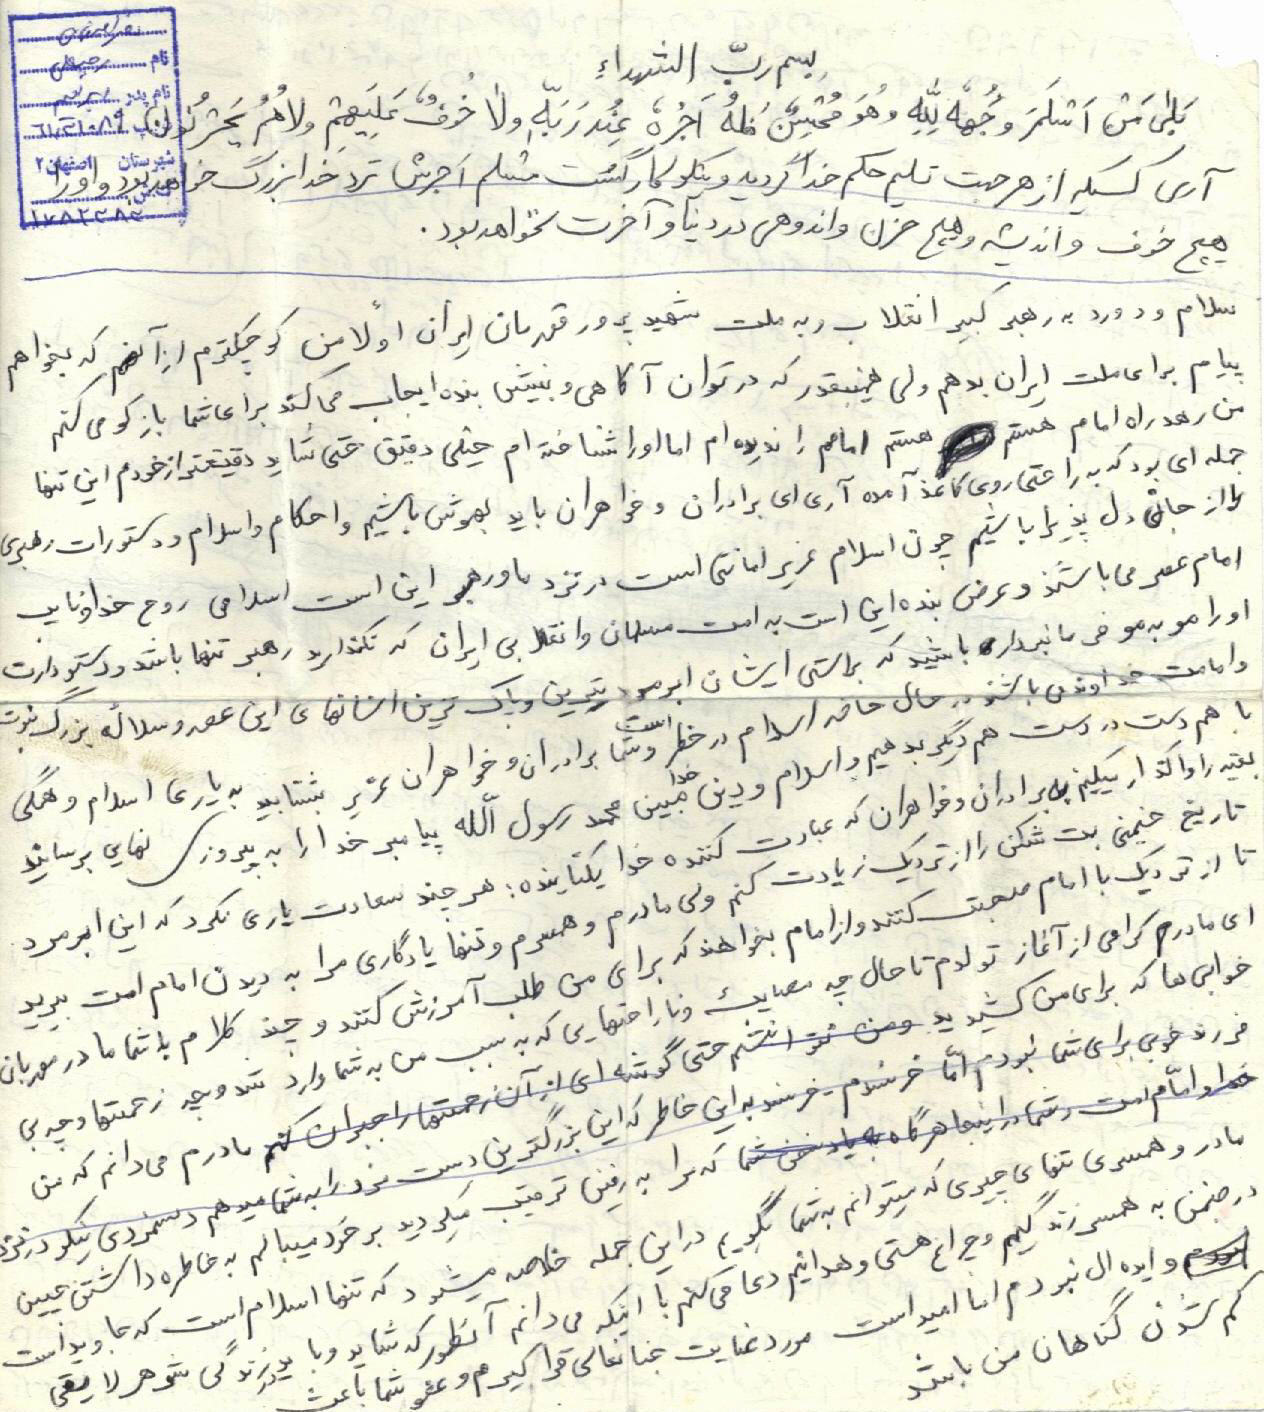 بسم ربّ الشهداء
بَلیٰ مَنْ اَسْلَمَ وَجْهَهُ لِلّهِ وَ هُوَ مُحْسِنٌ فَلَهُ اَجْرُهُ عِنْدَ رَبِّهِ وَلا خَوفٌ عَلَیهِمْ وَلا هُمْ یَحْزَنُونَ
آری کسیکه از هر جهت تسلیم حکم خدا گردید و نیکوکار گشت مسلم اَجرش نزد خدا بزرگ خواهد بود و او را
هیچ خوف و اندیشه و هیچ حزن و اندوهی در دنیا و آخرت نخواهد بود.
نام
نام پدر
شهرستان اصفهان ۲
سلام و درود به رهبر کبیر انقلاب و به ملت شهید پرور قهرمان ایران اولاً من کوچکترم از آنهم که بخواهم
پیام برای ملت ایران بدهم ولی همینقدر که در توان آگاهی و بینش بنده ایجاب می کند برای شما بازگو می کنم
من رهرو راه امام هستم هستم امام را ندیده ام اما او را شناخته ام خیلی دقیق حتی شاید دقیقتر از خودم این تنها
جمله ای بود که به راحتی روی کاغذ آمده آری ای برادران و خواهران باید بهوش باشیم و احکام و اسلام و دستورات رهبری
را از جان دل پذیرا باشیم چون اسلام عزیز امانتی است در نزد ما و رهبر این است اسلامی روح خدا و نایب
امام عصر می باشند و عرض بنده این است به امت مسلمان و انقلابی ایران که نگذارید رهبر تنها باشد و دستورات
او را مو به مو فرمانبردار باشید که براستی ایشان ابرمرد ترین و پاک ترین انسانهای این عصر و سلاله بزرگ نبوت
و امامت خداوندی باشند در حال حاضر اسلام در خطر است و شما برادران و خواهران عزیز بشتابید به یاری اسلام و همگی
با هم دست در دست هم دیگر بدهیم و اسلام و دین مبین خدا محمد رسول الله پیامبر خدا را به پیروزی نهایی برسانید
بقیه را واگذار میکنیم به برادران و خواهران که عبادت کننده خدا یکتاینده: هر چند سعادت یاری نکرد که این ابرمرد
تاریخ خمینی بت شکن را از نزدیک زیارت کنم ولی مادرم و همسرم و تنها یادگاری مرا به دیدن امام امت ببرید
تا از نزدیک با امام صحبت کنند و از امام بخواهند که برای من طلب آمرزش کنند و چند کلام با شما مادر مهربان
ای مادرم گرامی از آغاز تولدم تا حال چه مصایب و ناراحتهایی که به سبب من به شما وارد شد و چه زحمتها و چه بی
خوابی ها که برای من کشیدید و من نتوانستم حتی گوشه ای از آن زحمتها را جبران کنم مادرم می دانم که من
فرزند خوبی برای شما نبودم امّا خرسندم خرسند به این خاطر که این بزرگترین دست مزد را به شما میدهم دستمزدی نیکو در نزد
خدا و امّام امت و شما در اینجا هرگاه به یاد شما که مرا به رفتن ترغیب میکردید بر خود میبالم به خاطره داشتن چنین
مادر و همسری تنهای چیزی که میتوانم به شما بگویم در این جمله خلاصه میشود که تنها اسلام است که جاوید است
در ضمن به همسر زندگیم و چراغ هستی و هدایتم دعا می کنم با اینکه می دانم آنطور که شاید و باید در زندگی شوهر لایقی
و ایده ال نبودم اما امید است مورد عنایت خدایتعالی قرا گیرم و عفو شما باعث
کم شدن گناهان من باشد